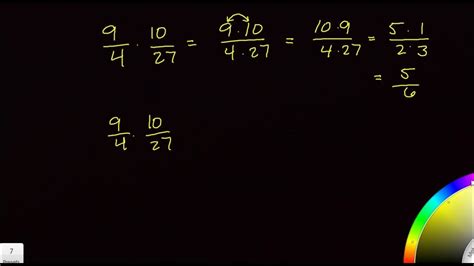 9/4 · 10/27 = 9·10/4·27 = 10·9/4·27 = 5·1/2·3
= 5/6
9/4 · 10/27
7